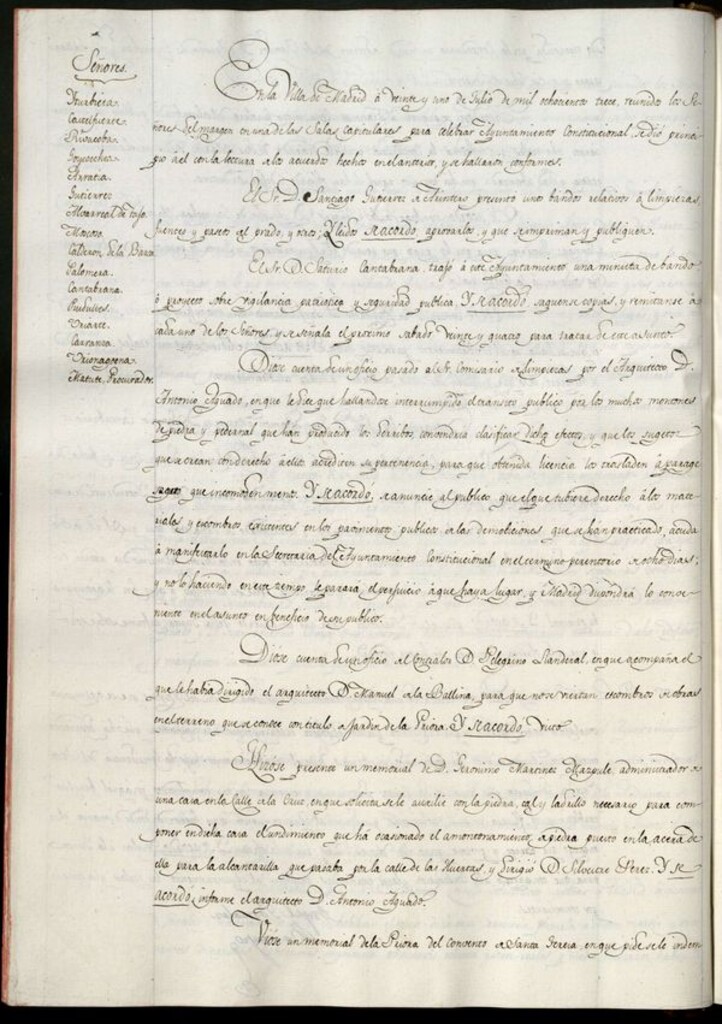 Señores
Yturbieta.
Castelfuerte.
Rioscoba.
Goycoechea.
Arratia.
Gutierrez.
Moscoso.
Calderon de la Barca
Palomera.
Cantabrana.
Uriarte.
Carranza.
Matute, Procurador.
En la Villa de Madrid á veinte y uno de Julio de mil ochocientos trece, reunidos los Se-
ñores del margen en una de las Salas capitulares para celebrar Ayuntamiento Constitucional, se dió princi-
pio á el con la lectura de los acuerdos hechos en el anterior, y se hallaron conformes.
El Sr. D. Santiago Gutierrez de presentó unos bandos relativos á limpiezas,
fuentes y paseos del prado, y otro; Y leidos se acordó, aprobarlos, y que se impriman y publiquen.
El Sr. D. Saturio Cantabrana, trajó á este Ayuntamiento una minuta de bando
ó proyecto sobre vigilancia patriotica y seguridad publica. Y se acordó, saquense copias, y remitanse á
cada uno de los Señores, y se señala el proximo sabado veinte y quatro para tratar de este asunto.
Diose cuenta de un oficio pasado al Sr. Comisario de limpiezas por el Arquitecto D.
Antonio Aguado, en que le dice que hallandose interrumpido el transito publico por los muchos montones
de piedra y pedernal que han producido los derribos, convendria clasificar dichos efectos, y que los sugetos
que se crean con derecho á ellos acrediten su pertenencia, para que obtenida licencia los trasladen á parage
que incomoden menos. Y se acordó, se anuncie al publico que el que tubiere derecho á los mate-
riales y escombros existentes en los pavimentos publicos de las demoliciones que se han practicado, acuda
á manifestarlo en la Secretaria del Ayuntamiento Constitucional en el termino perentorio de ocho dias;
y no lo haciendo en este tiempo le parará el perjuicio á que haya lugar, y Madrid dispondrá lo conve-
niente en el asunto en beneficio de su publico.
Diose cuenta de un oficio del Conserje D. Pelegrino Llanderal, en que acompaña el
que le habia dirigido el arquitecto D. Manuel de la Ballina, para que no se viertan escombros de obras
en el terreno que se conoce con titulo de Jardin de la Priora. Y se acordó, Visto
Hizose presente un memorial de D. Geronimo Martinez Mazpule administrador de
una casa en la Calle de la Cruz, en que solicita se le auxilie con la piedra, cal y ladrillo necesario para com-
poner en dicha casa el undimiento que há ocasionado el amontonamiento de piedra puesto en la acera de
ella para la alcantarilla que pasaba por la calle de las Huertas, y dirigió D. Silvestre Perez. Y se
acordó, informe el arquitecto D. Antonio Aguado.
Viose un memorial de la Priora del Convento de Santa Teresa, en que pide se le indem